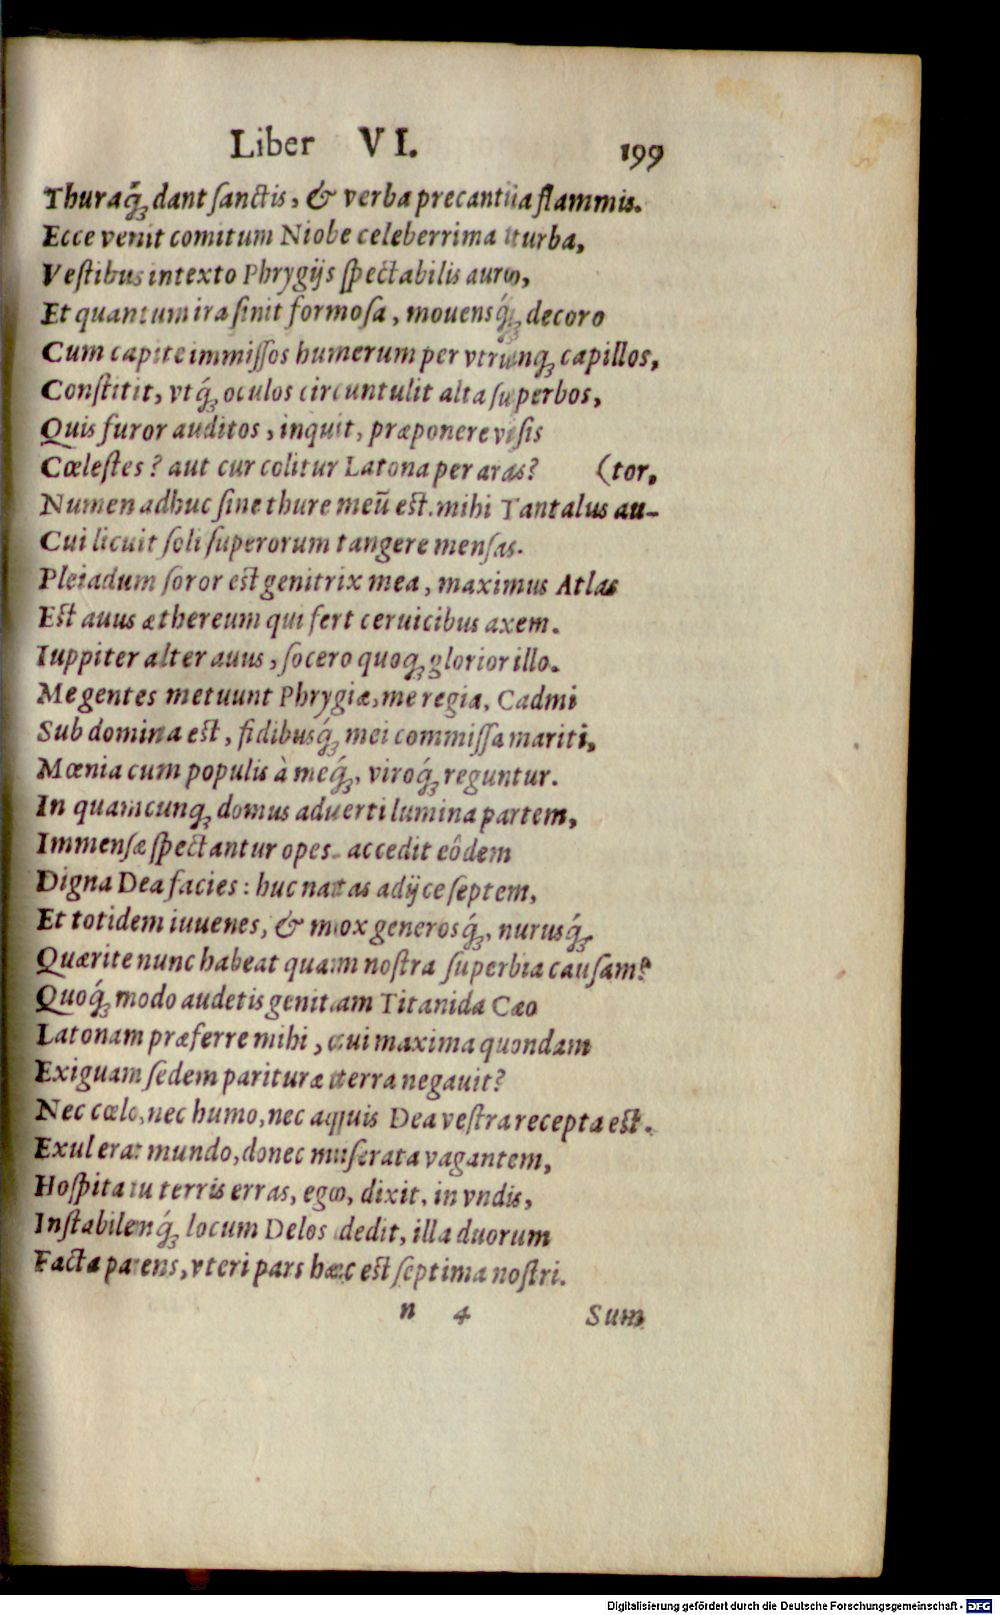 Liber VI. 199
Thuraq́ꝫ dant ſanctis, & verba precantiia flammis.
Ecce venit comitum Niobe celeberrima turba,
Veſtibus intexto Phrygijs ſpectabilis auro,
Et quantum ira ſinit formoſa, mouensq́ꝫ decoro
Cum capite immiſſos humerum per vtrunqꝫ capillos,
Conſtitit, vtq́ꝫ oculos circuntulit alta ſuperbos,
Quis furor auditos, inquit, præponere viſis
Cœleſtes? aut cur colitur Latona per aras? (tor.
Numen adhuc ſine thure meũ est. mihi Tantalus au-
Cui licuit ſoli ſuperorum tangere menſas.
Pleiadum ſoror est genitrix mea, maximus Atlas
Est auus æthereum qui fert ceruicibus axem.
Iuppiter alter auus, ſocero quoqꝫ glorior illo.
Me gentes metuunt Phrygiæ, me regia, Cadmi
Sub domina est, fidibusq́ꝫ mei commiſſa mariti,
Mœnia cum populis à meq́ꝫ, viroq́ꝫ reguntur.
In quamcunqꝫ domus aduerti lumina partem,
Immenſæ ſpectantur opes. accedit eôdem
Digna Dea facies: huc natas adijce ſeptem,
Et totidem iuuenes, & mox generosq́ꝫ, nurusq́ꝫ.
Quærite nunc habeat quam noſtra ſuperbia cauſam?
Quoq́ꝫ modo audetis genitam Titanida Cæo
Latonam præferre mihi, cui maxima quondam
Exiguam ſedem parituræ terra negauit?
Nec cœlo, nec humo, nec aquis Dea veſtra recepta est.
Exul erat mundo, donec miſerata vagantem,
Hoſpita tu terris erras, ego, dixit, in vndis,
Inſtabilemq́ꝫ locum Delos dedit, illa duorum
Facta parens, vteri pars hæc est ſeptima noſtri.
n 4 Sum
Digitalisierung gefördert durch die Deutsche Forschungsgemeinschaft - DFG